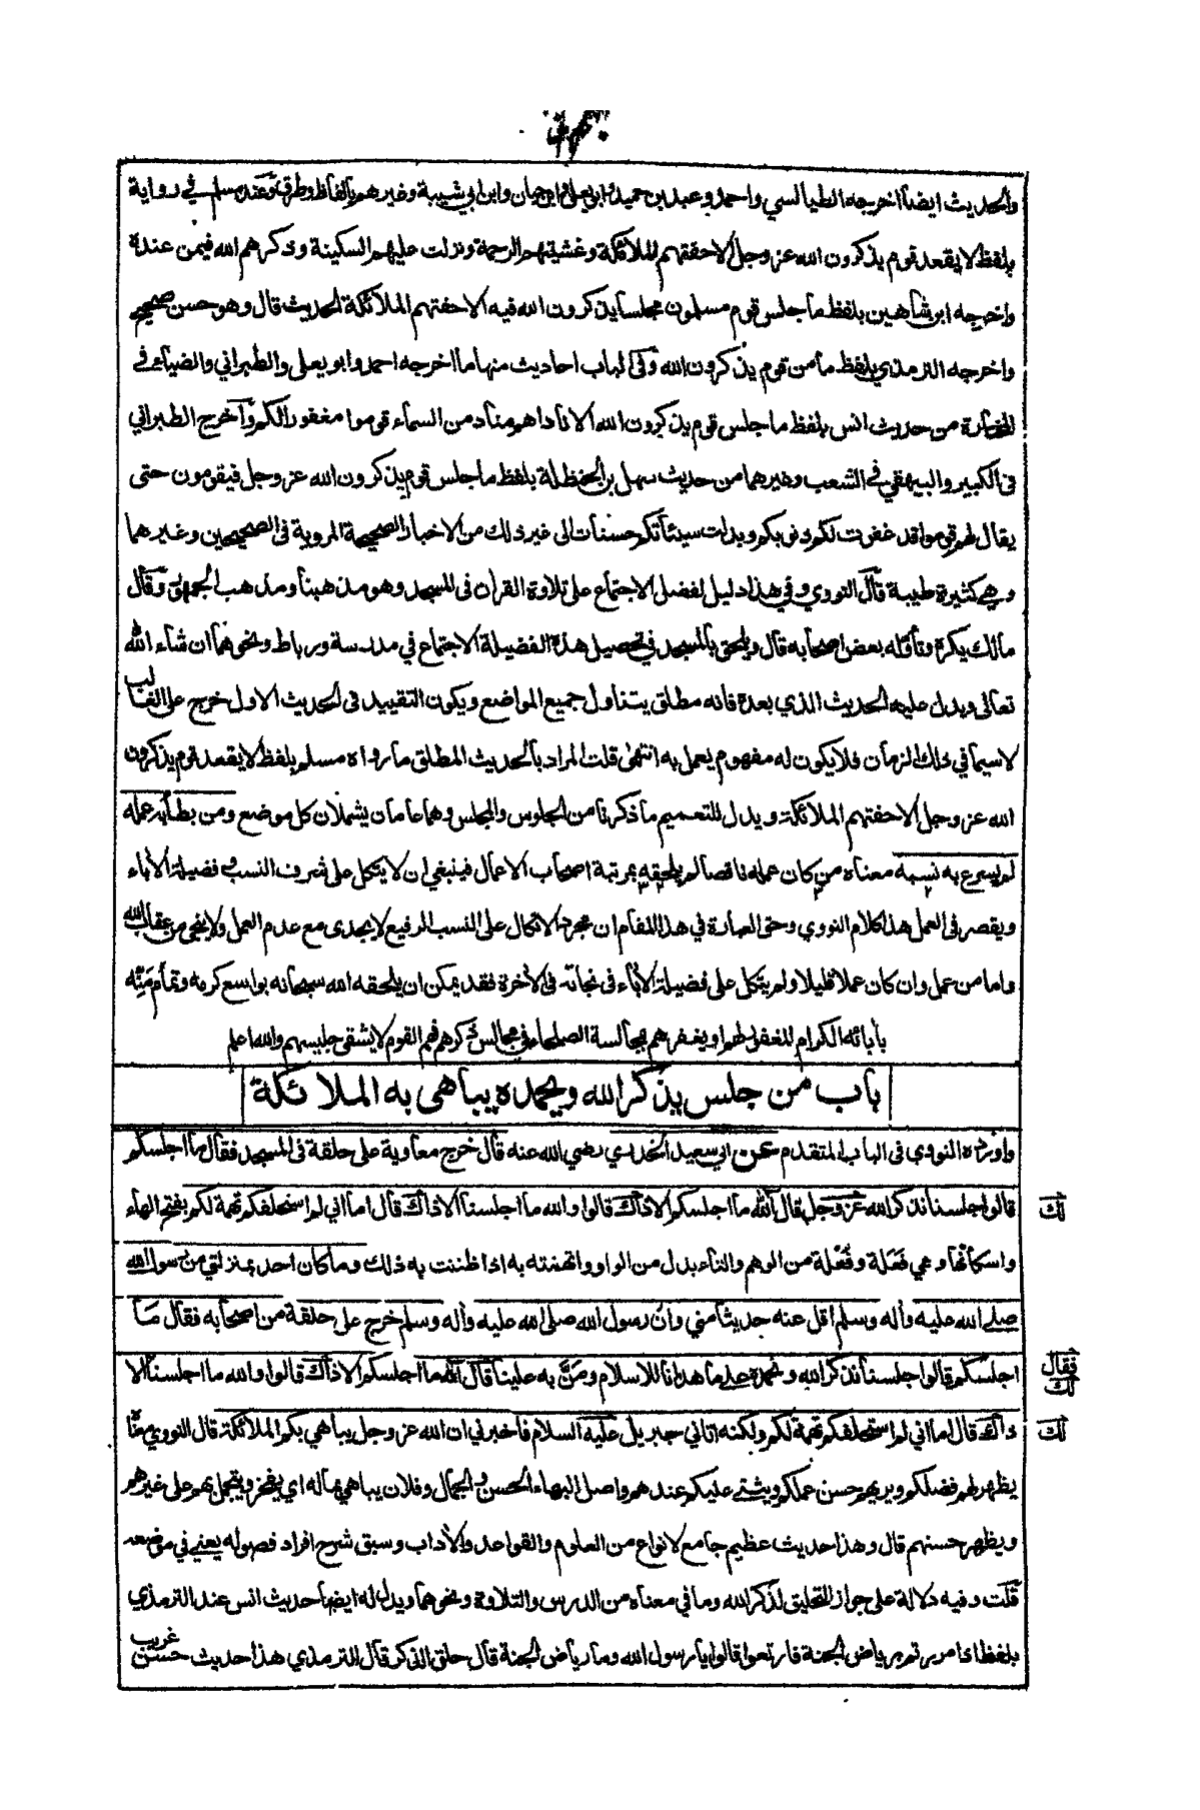 والحديث ايضا اخرجه الطيالسي واحمد وعبد بن حميد وابو يعلى وابن حبان وابن ابي شيبة وغيرهم بالفاظ وطرق وعند مسلم في رواية
بلفظ لا يقعد قوم يذكرون الله عز وجل الا حفتهم الملائكة وغشيتهم الرحمة ونزلت عليهم السكينة وذكرهم الله فيمن عنده
واخرجه ابن شاهين بلفظ ما جلس قوم مسلمون مجلسا يذكرون الله فيه الا حفتهم الملائكة الحديث قال وهو حسن صحيح
واخرجه الترمذي بلفظ ما من قوم يذكرون الله وفي الباب احاديث منها ما اخرجه احمد وابو يعلى والطبراني والضياء في
المختارة من حديث انس بلفظ ما جلس قوم يذكرون الله الا ناداهم مناد من السماء قوموا مغفورا لكم واخرج الطبراني
في الكبير والبيهقي في الشعب وغيرهما من حديث سهل بن الحنظلة بلفظ ما جلس قوم يذكرون الله عز وجل فيقومون حتى
يقال لهم قوموا قد غفرت لكم ذنوبكم وبدلت سيئاتكم حسنات الى غير ذلك من الاخبار الصحيحة المروية في الصحيحين وغيرهما
وهي كثيرة طيبة قال النووي وفي هذا دليل لفضل الاجتماع على تلاوة القران في المسجد وهو مذهبنا ومذهب الجمهور وقال
مالك يكره وتأوله بعض اصحابه قال ويلحق بالمسجد في تحصيل هذه الفضيلة الاجتماع في مدرسة ورباط ونحوهما ان شاء الله
تعالى ويدل عليه الحديث الذي بعده فانه مطلق يتناول جميع المواضع ويكون التقييد في الحديث الاول خرج على الغالب
لا سيما في ذلك الزمان فلا يكون له مفهوم يعمل به انتهى قلت المراد بالحديث المطلق ما رواه مسلم بلفظ لا يقعد قوم يذكرون
الله عز وجل الا حفتهم الملائكة ويدل للتعميم ما ذكرنا من الجلوس والمجلس وهما عامان يشملان كل موضع ومن بطأ به عمله
لم يسرع به نسبه معناه من كان عمله ناقصا لم يلحقه بمرتبة اصحاب الاعمال فينبغي ان لا يتكل على شرف النسب وفضيلة الأباء
ويقصر في العمل هذا كلام النووي وحق العبارة في هذا المقام ان مجرد الاتكال على النسب الرفيع لا يجدى مع عدم العمل ولا ينجى من عقاب الله
واما من عمل وان كان عملا قليلا ولم يتكل على فضيلة الأباء في نجاته في الأخرة فقد يمكن ان يلحقه الله سبحانه بواسع كرمه وتمام منه
بأبائه الكرام المغفور لهم او يغفر هم بمجالسة الصلحاء في مجالس ذكرهم فهم القوم لا يشقى جليسهم والله اعلم
باب من جلس يذكر الله ويحمده يباهى به الملائكة
واورده النووي في الباب المتقدم عن ابي سعيد الخدري رضي الله عنه قال خرج معاوية على حلقة في المسجد فقال ما اجلسكم
قالوا جلسنا نذكر الله عز وجل قال ألله ما اجلسكم الا ذاك قالوا والله ما اجلسنا الا ذاك قال اما اني لم استحلفكم تهمة لكم بفتح الهاء
لك
واسكانها وهي فعلة وفعلة من الوهم والتاء بدل من الواو واتهمته به اذا ظننت به ذلك وما كان احد بمنزلتي من رسول الله
صلى الله عليه وأله وسلم اقل عنه حديثا مني وان رسول الله صلى الله عليه وأله وسلم خرج على حلقة من اصحابه فقال ما
اجلسكم قالوا جلسنا نذكر الله ونحمده على ما هدانا للاسلام ومن به علينا قال ألله ما اجلسكم الا ذاك قالوا والله ما اجلسنا الا
فقال
لك
ذاك قال اما اني لم استحلفكم تهمة لكم ولكنه اتاني جبريل عليه السلام فاخبرني ان الله عز وجل يباهي بكم الملائكة قال النووي معناه
لك
يظهر لهم فضلكم ويريهم حسن عملكم ويثني عليكم عندهم واصل البهاء الحسن والجمال وفلان يباهي بماله اي يفخر ويتجمل بهم على غيرهم
ويظهر حسنهم قال وهذا حديث عظيم جامع لانواع من العلوم والقواعد والأداب وسبق شرح افراد فصوله يعني في موضعه
قلت وفيه دلالة على جواز التحليق لذكر الله وما في معناه من الدرس والتلاوة ونحوهما ويدل له ايضا حديث انس عند الترمذي
بلفظ اذا مررتم برياض الجنة فارتعوا قالوا يا رسول الله وما رياض الجنة قال حلق الذكر قال الترمذي هذا حديث حسن غريب